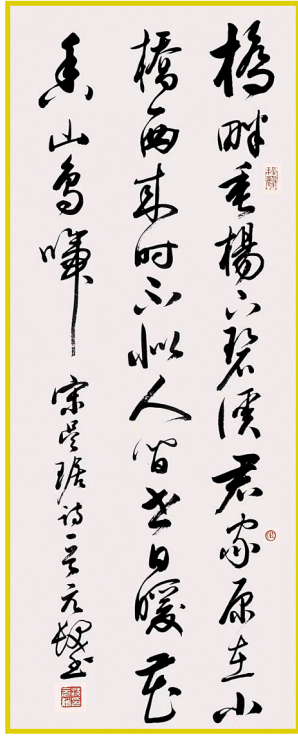 橋畔垂楊下碧溪君家原在小
橋西来时不似人间世日暖花
香山鸟啼
宋吴琚诗一首